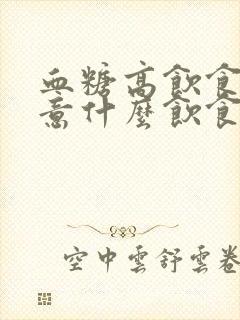 血糖高飲食
意什麼飲食
空中雲舒雲卷